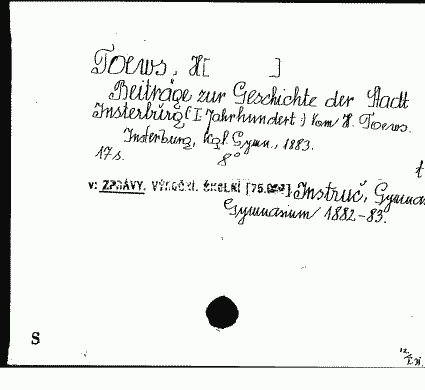 Toews, H[ ]
Beiträge zur Geschichte der Stadt
Insterburg (I Jahrhundert.) Vom H. Toews.
Insterburg, Kgl. Gymn., 1883.
17 s. 8°
v: ZPRÁVY. VÝROČNÍ. ŠKOLNÍ [75.] Instruč, Gymnas
Gymnasium 1882-83.
S